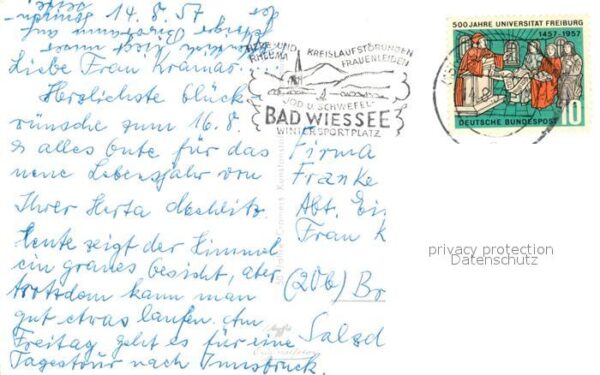 14.8.57
Liebe Frau Kramar.
Herzlichste Glück
wünsche zum 16.8.
u. alles Gute für das
neue Lebensjahr von
Ihrer Herta
Heute zeigt der Himmel
ein graues Gesicht, aber
trotzdem kann man
gut etwas laufen. Am
Freitag geht es für eine
Tagestour nach Innsbruck.
HERZ- UND KREISLAUFSTÖRUNGEN
RHEUMA FRAUENLEIDEN
JOD U. SCHWEFEL-
BAD WIESSEE
WINTERSPORTPLATZ
500 JAHRE UNIVERSITÄT FREIBURG
1457-1957
DEUTSCHE BUNDESPOST 10
Firma
Franke
Abt. Ei
Frau K
(20b) Br
Salzd
privacy protection
Datenschutz